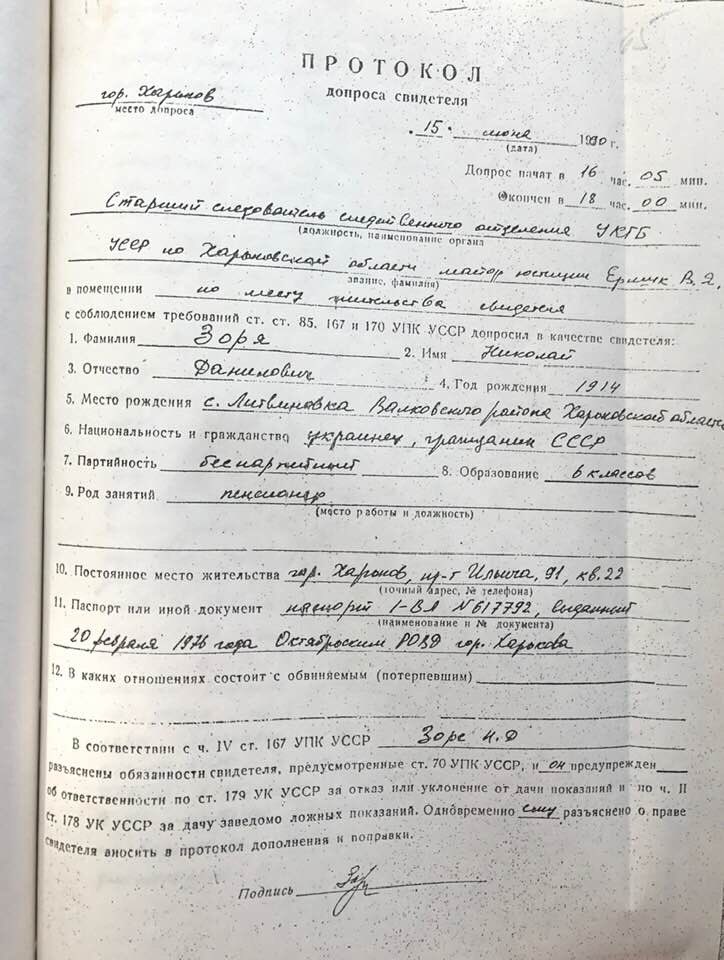 ПРОТОКОЛ
допроса свидетеля
гор. Харьков
место допроса
"15" июня 1990 г.
(дата)
Допрос начат в 16 час. 05 мин.
Окончен в 18 час. 00 мин.
Старший следователь следственного отделения УКГБ
(должность, наименование органа
УССР по Харьковской области майор юстиции
звание, фамилия)
в помещении по месту жительства свидетеля
с соблюдением требований ст. ст. 85, 167 и 170 УПК УССР допросил в качестве свидетеля:
1. Фамилия Зоря 2. Имя Николай
3. Отчество Данилович 4. Год рождения 1914
5. Место рождения с. Литвиновка Валковского района Харьковской области
6. Национальность и гражданство украинец, гражданин СССР
7. Партийность беспартийный 8. Образование 6 классов
9. Род занятий пенсионер
(место работы и должность)
10. Постоянное место жительства гор. Харьков, пр-т Ильича, 91, кв. 22
(точный адрес, № телефона)
11. Паспорт или иной документ паспорт I-ВЛ №617792, выданный
(наименование и № документа)
20 февраля 1976 года Октябрьским РОВД гор. Харькова
12. В каких отношениях состоит с обвиняемым (потерпевшим)
В соответствии с ч. IV ст. 167 УПК УССР Зоре Н.Д
разъяснены обязанности свидетеля, предусмотренные ст. 70 УПК УССР, и он предупрежден
об ответственности по ст. 179 УК УССР за отказ или уклонение от дачи показаний и по ч. II
ст. 178 УК УССР за дачу заведомо ложных показаний. Одновременно ему разъяснено о праве
свидетеля вносить в протокол дополнения и поправки.
Подпись